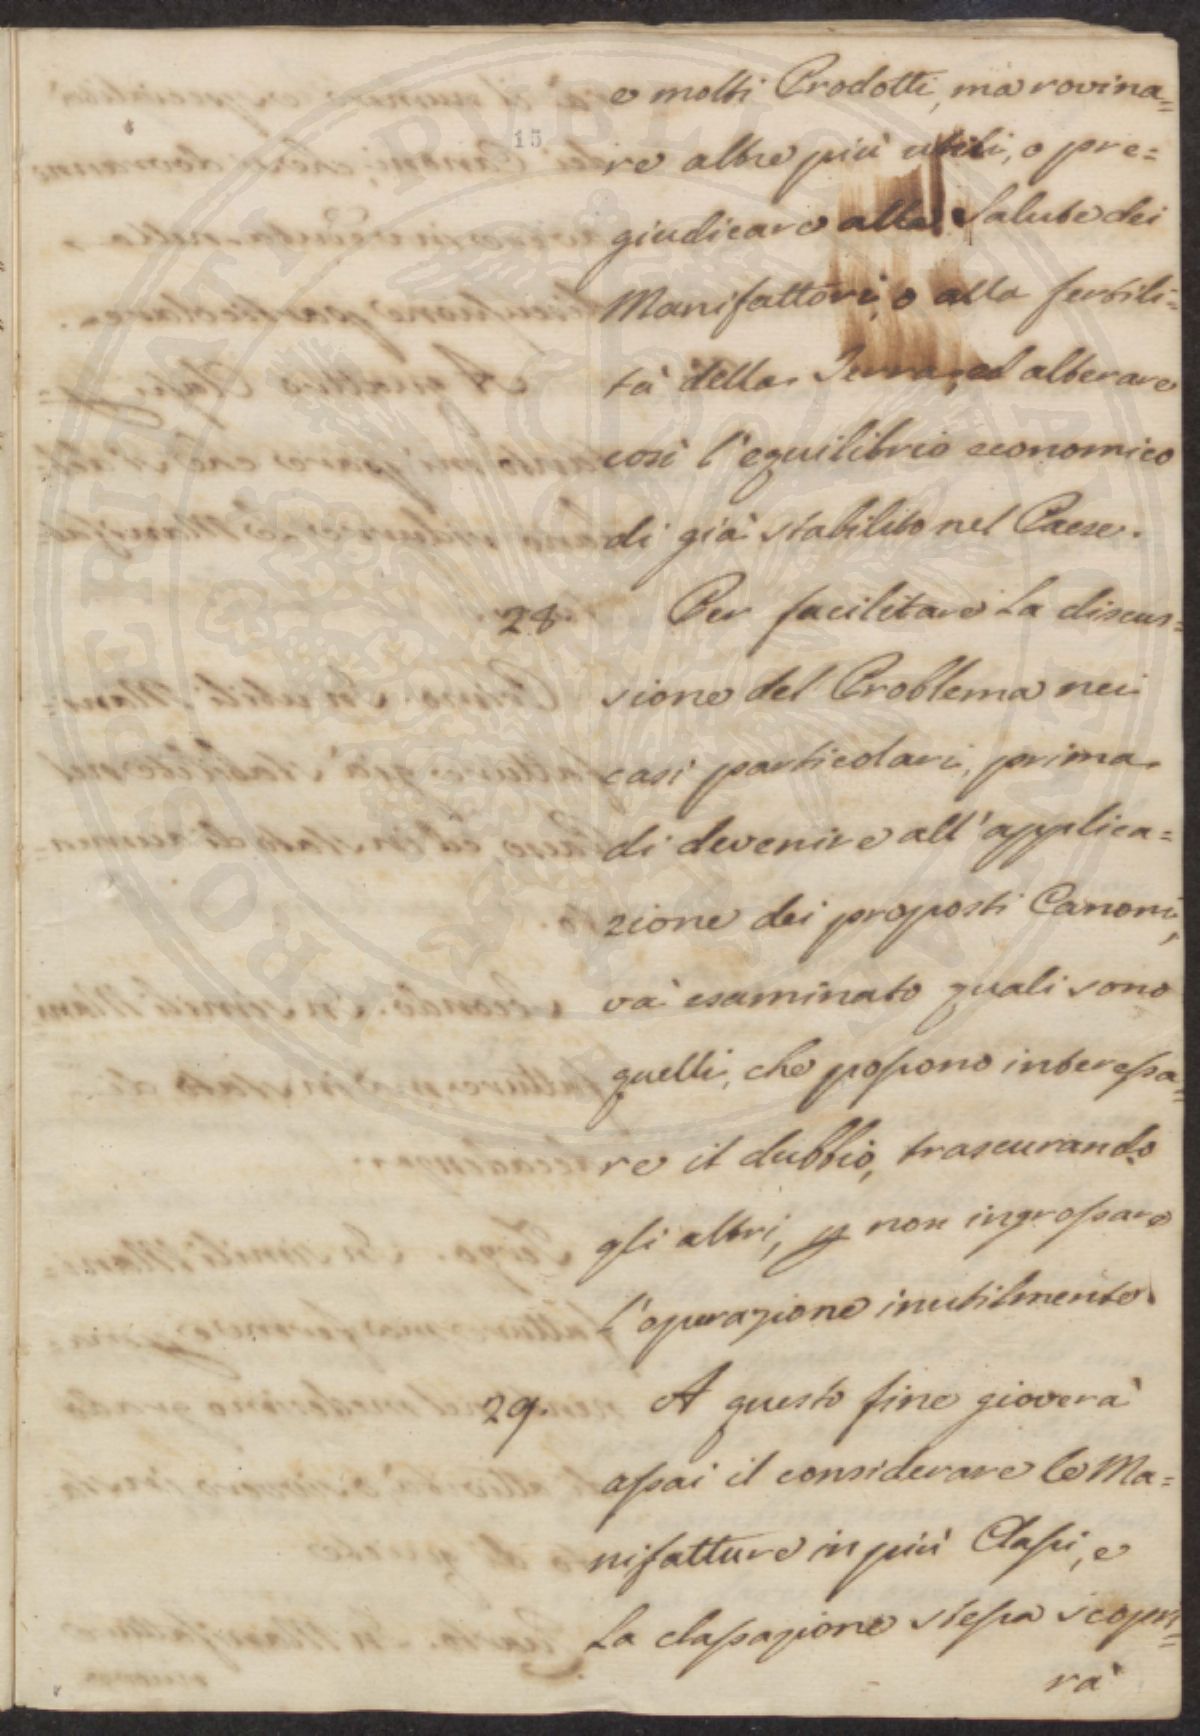 15
e molti Prodotti, ma rovina=
re altre più utili, o pre=
giudicare alla Salute dei
Manifattori, o alla fertili=
tà della Terra, ed alterare
così l'equilibrio economico
di già stabilito nel Paese.
28. Per facilitare la discus=
sione del Problema nei
casi particolari, prima
di devenire all'applica=
zione dei proposti Canoni,
và esaminato quali sono
quelli, che possono interessa=
re il dubbio, trascurando
gli altri, p non ingrossare
l'operazione inutilmente.
29. A questo fine gioverà
assai il considerare le Ma=
nifatture in più Classi, e
la classazione stessa scopri=
rà